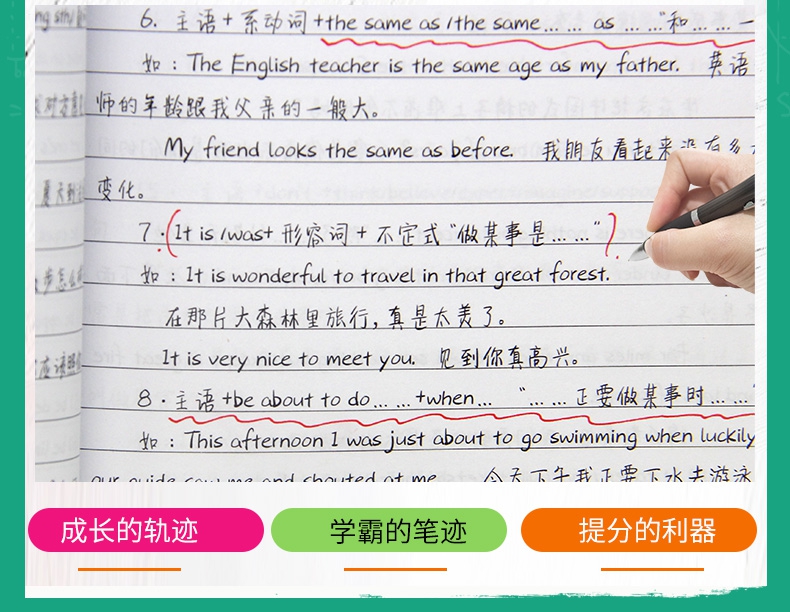 6. 主语 + 系动词 +the same as /the same… … as … …"和… … 一
如 : The English teacher is the same age as my father. 英语
师的年龄跟我父亲的一般大。
My friend looks the same as before. 我朋友看起来没有多
变化。
7. It is /was+ 形容词 + 不定式 "做某事是… …"
如 : It is wonderful to travel in that great forest.
在那片大森林里旅行,真是太美了。
It is very nice to meet you. 见到你真高兴。
8. 主语 +be about to do… … +when… "… … 正要做某事时… …"
如 : This afternoon I was just about to go swimming when luckily
our guide saw me and shouted at me 今天下午我正要下水去游泳
成长的轨迹
学霸的笔迹
提分的利器